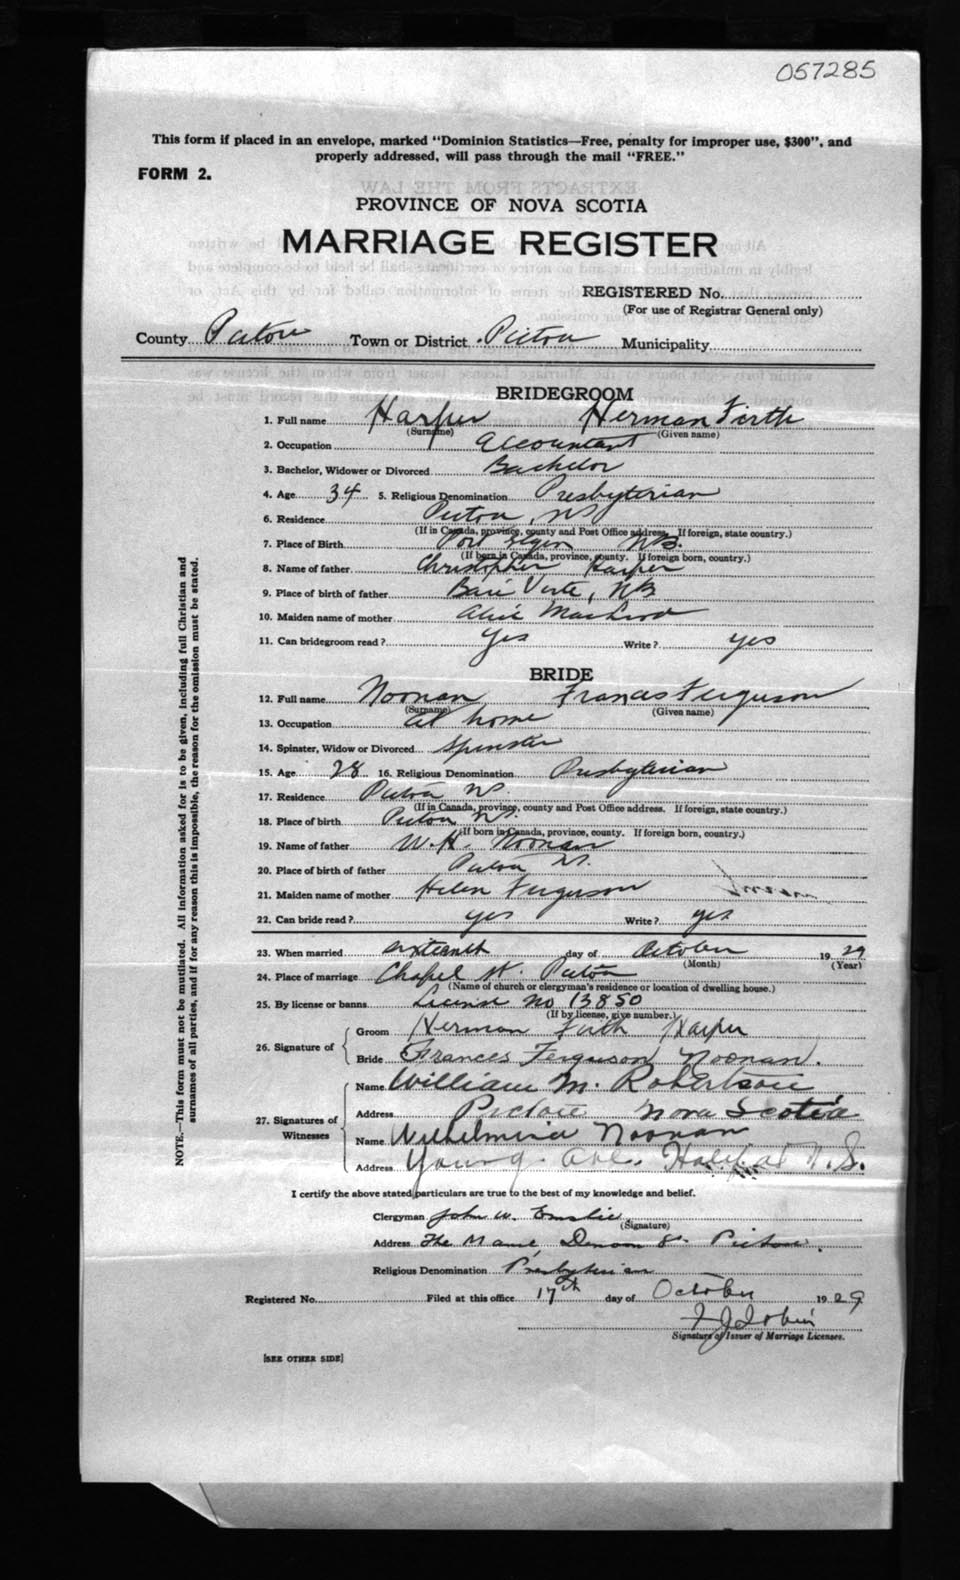 057285
This form if placed in an envelope, marked "Dominion Statistics—Free, penalty for improper use, $300", and
properly addressed, will pass through the mail "FREE."
FORM 2.
PROVINCE OF NOVA SCOTIA
MARRIAGE REGISTER
REGISTERED No.
(For use of Registrar General only)
County Pictou Town or District Pictou Municipality
BRIDEGROOM
1. Full name Harper Herman Firth
(Surname) (Given name)
2. Occupation Accountant
3. Bachelor, Widower or Divorced Bachelor
4. Age 34 5. Religious Denomination Presbyterian
6. Residence Pictou, NS
(If in Canada, province, county and Post Office address. If foreign, state country.)
7. Place of Birth Port Elgin NB.
(If born in Canada, province, county. If foreign born, country.)
8. Name of father Christopher Harper
9. Place of birth of father Baie Verte, NB
10. Maiden name of mother Alice MacLeod
11. Can bridegroom read? Yes Write? yes
BRIDE
12. Full name Noonan Frances Ferguson
(Surname) (Given name)
13. Occupation at home
14. Spinster, Widow or Divorced Spinster
15. Age 28 16. Religious Denomination Presbyterian
17. Residence Pictou NS.
(If in Canada, province, county and Post Office address. If foreign, state country.)
18. Place of birth Pictou NS.
(If born in Canada, province, county. If foreign born, country.)
19. Name of father W. H. Noonan
20. Place of birth of father Pictou NS.
21. Maiden name of mother Helen Ferguson
22. Can bride read? yes Write? yes
23. When married sixteenth day of October 19 29
(Month) (Year)
24. Place of marriage Chapel St. Pictou
(Name of church or clergyman's residence or location of dwelling house.)
25. By license or banns License No 13850
(If by license, give number.)
26. Signature of Groom Herman Firth Harper
Bride Frances Ferguson Noonan.
27. Signatures of Witnesses
Name William M. Robertson
Address Pictou Nova Scotia
Name Wilhelmina Noonan
Address Young Ave. Halifax N.S.
I certify the above stated particulars are true to the best of my knowledge and belief.
Clergyman John W. Emslie
(Signature)
Address The Manse, Denoon St. Pictou.
Religious Denomination Presbyterian
Registered No. Filed at this office 17th day of October 19 29
Signature of Issuer of Marriage Licenses.
[SEE OTHER SIDE]
NOTE.—This form must not be mutilated. All information asked for is to be given, including full Christian and
surnames of all parties, and if for any reason this is impossible, the reason for the omission must be stated.